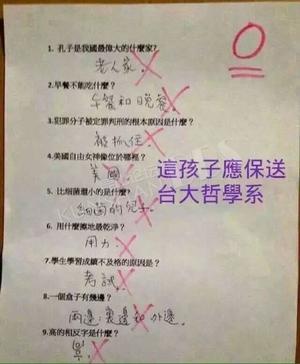 0
1. 孔子是我國最偉大的什麼家?
老人家.
2.早餐不能吃什麼?
午餐和晚餐.
3.犯罪分子被定罪判刑的根本原因是什麼?
被抓住.
4.美國自由女神像位於哪裡?
美國.
這孩子應保送
台大哲學系
5. 比細菌還小的是什麼?
細菌的兒子.
6. 用什麼擦地最乾淨?
用力.
7.學生學習成績不及格的原因是?
考試.
8.一個盒子有幾邊?
兩邊:裏邊和外邊.
9.高的相反字是什麼?